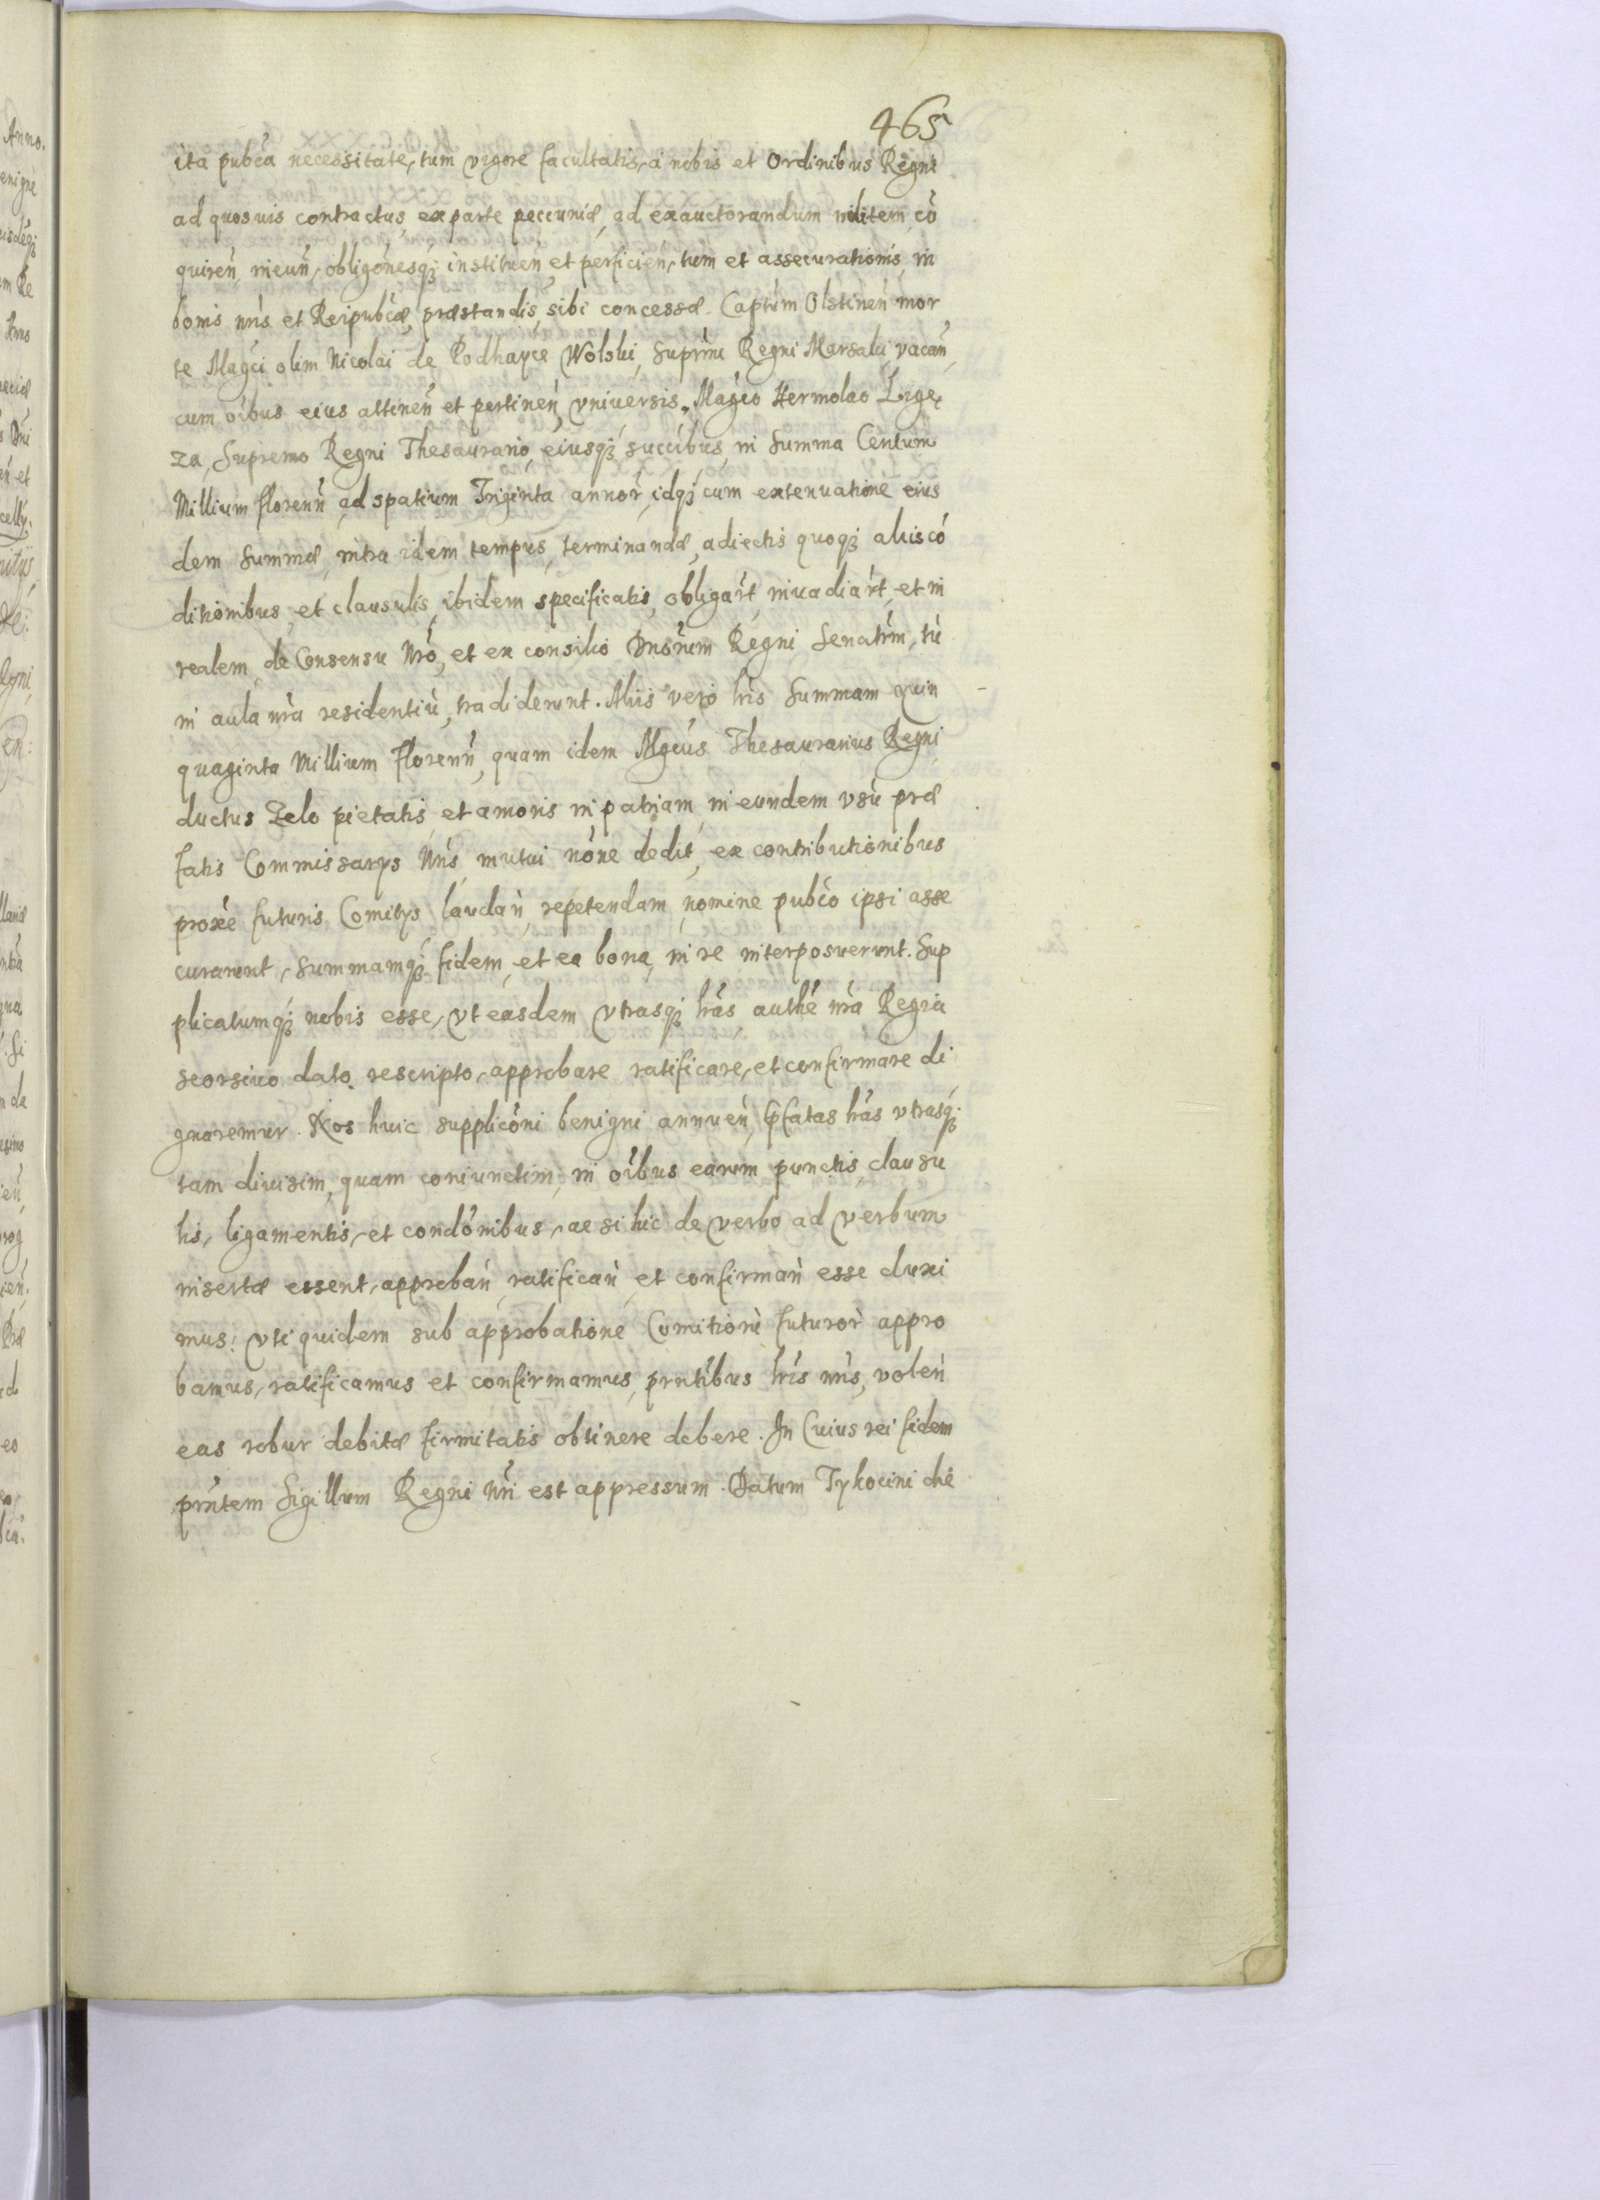 465
ita pubca necessitate, tum vigore facultatis, a nobis et Ordinibus Regni
ad quosuis contractus, ex parte peccuniæ, ad exauctorandum militem, cō
quiren̄, ineun̄, obligōnesq; instituen̄ et perficien̄, tum et assecurationis, in
bonis nr̄is et Reipubcæ, præstandis, sibi concessæ. Captum Olstinen̄ mor
te Magci olim Nicolai de Podhayce Wolski, Supremi Regni Marsalci, vacan̄,
cum oībus eius attinen̄ et pertinen̄ vniuersis, Magco Hermolao Lige
za, Supremo Regni Thesaurario, eiusq; succībus, in Summa Centum
Millium floren̄ ad spatium Triginta annor̄, idq; cum extenuatione eius
dem Summæ, intra idem tempus, terminandæ, adiectis quoq; alijs cō
ditionibus, et clausulis, ibidem specificatis, obligar̄t, inuadiar̄t, et in
realem, de Consensu Nrō, et ex consilio Dnōrum Regni Senatr̄m, tū
in aula nr̄a residentiū, tradiderunt. Alijs vero lr̄is Summam quin
quaginta Millium Floren̄, quam idem Mgcus Thesaurarius Regni
ductus Zelo pietatis, et amoris in patriam, in eundem vsū præ
fatis Commissarys Nr̄is, mutui nōne dedit, ex contributionibus
proxē futuris Comitys laudan̄, repetendam, nomine pubco ipsi asse
curarunt, Summamq; fidem, et ea bona, in re interposuerunt. Sup
plicatumq; nobis esse, vt easdem vtrasq; lr̄as, authē nr̄a Regia
seorsiuo dato rescripto, approbare ratificare, et confirmare di
gnaremur. Nos huic supplicōni benigni annuen̄, p̄fatas lr̄as vtrasq;
tam diuisim, quam coniunctim, in oībus earum punctis, clausu
lis, ligamentis, et condōnibus, ac si hic de verbo ad verbum
insertæ essent, approban̄, ratifican̄, et confirman̄ esse duxi
mus: vti quidem sub approbatione Comitiorū futuror̄ appro
bamus, ratificamus et confirmamus, prn̄tibus lr̄is nr̄is, volen̄
eas robur debitæ firmitatis obtinere debere. In Cuius rei fidem
prn̄tem Sigillum Regni Nr̄i est appressum. Datum Tykocini diē